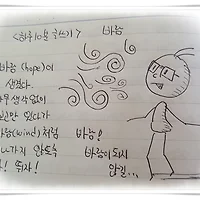 <하루10분 글쓰기> 바람
바람 (hope)이
생겼다.
생각없이
있다가
바람(wind)처럼 바람!
않도록 바람이 되지
! 뛰자! 않길...